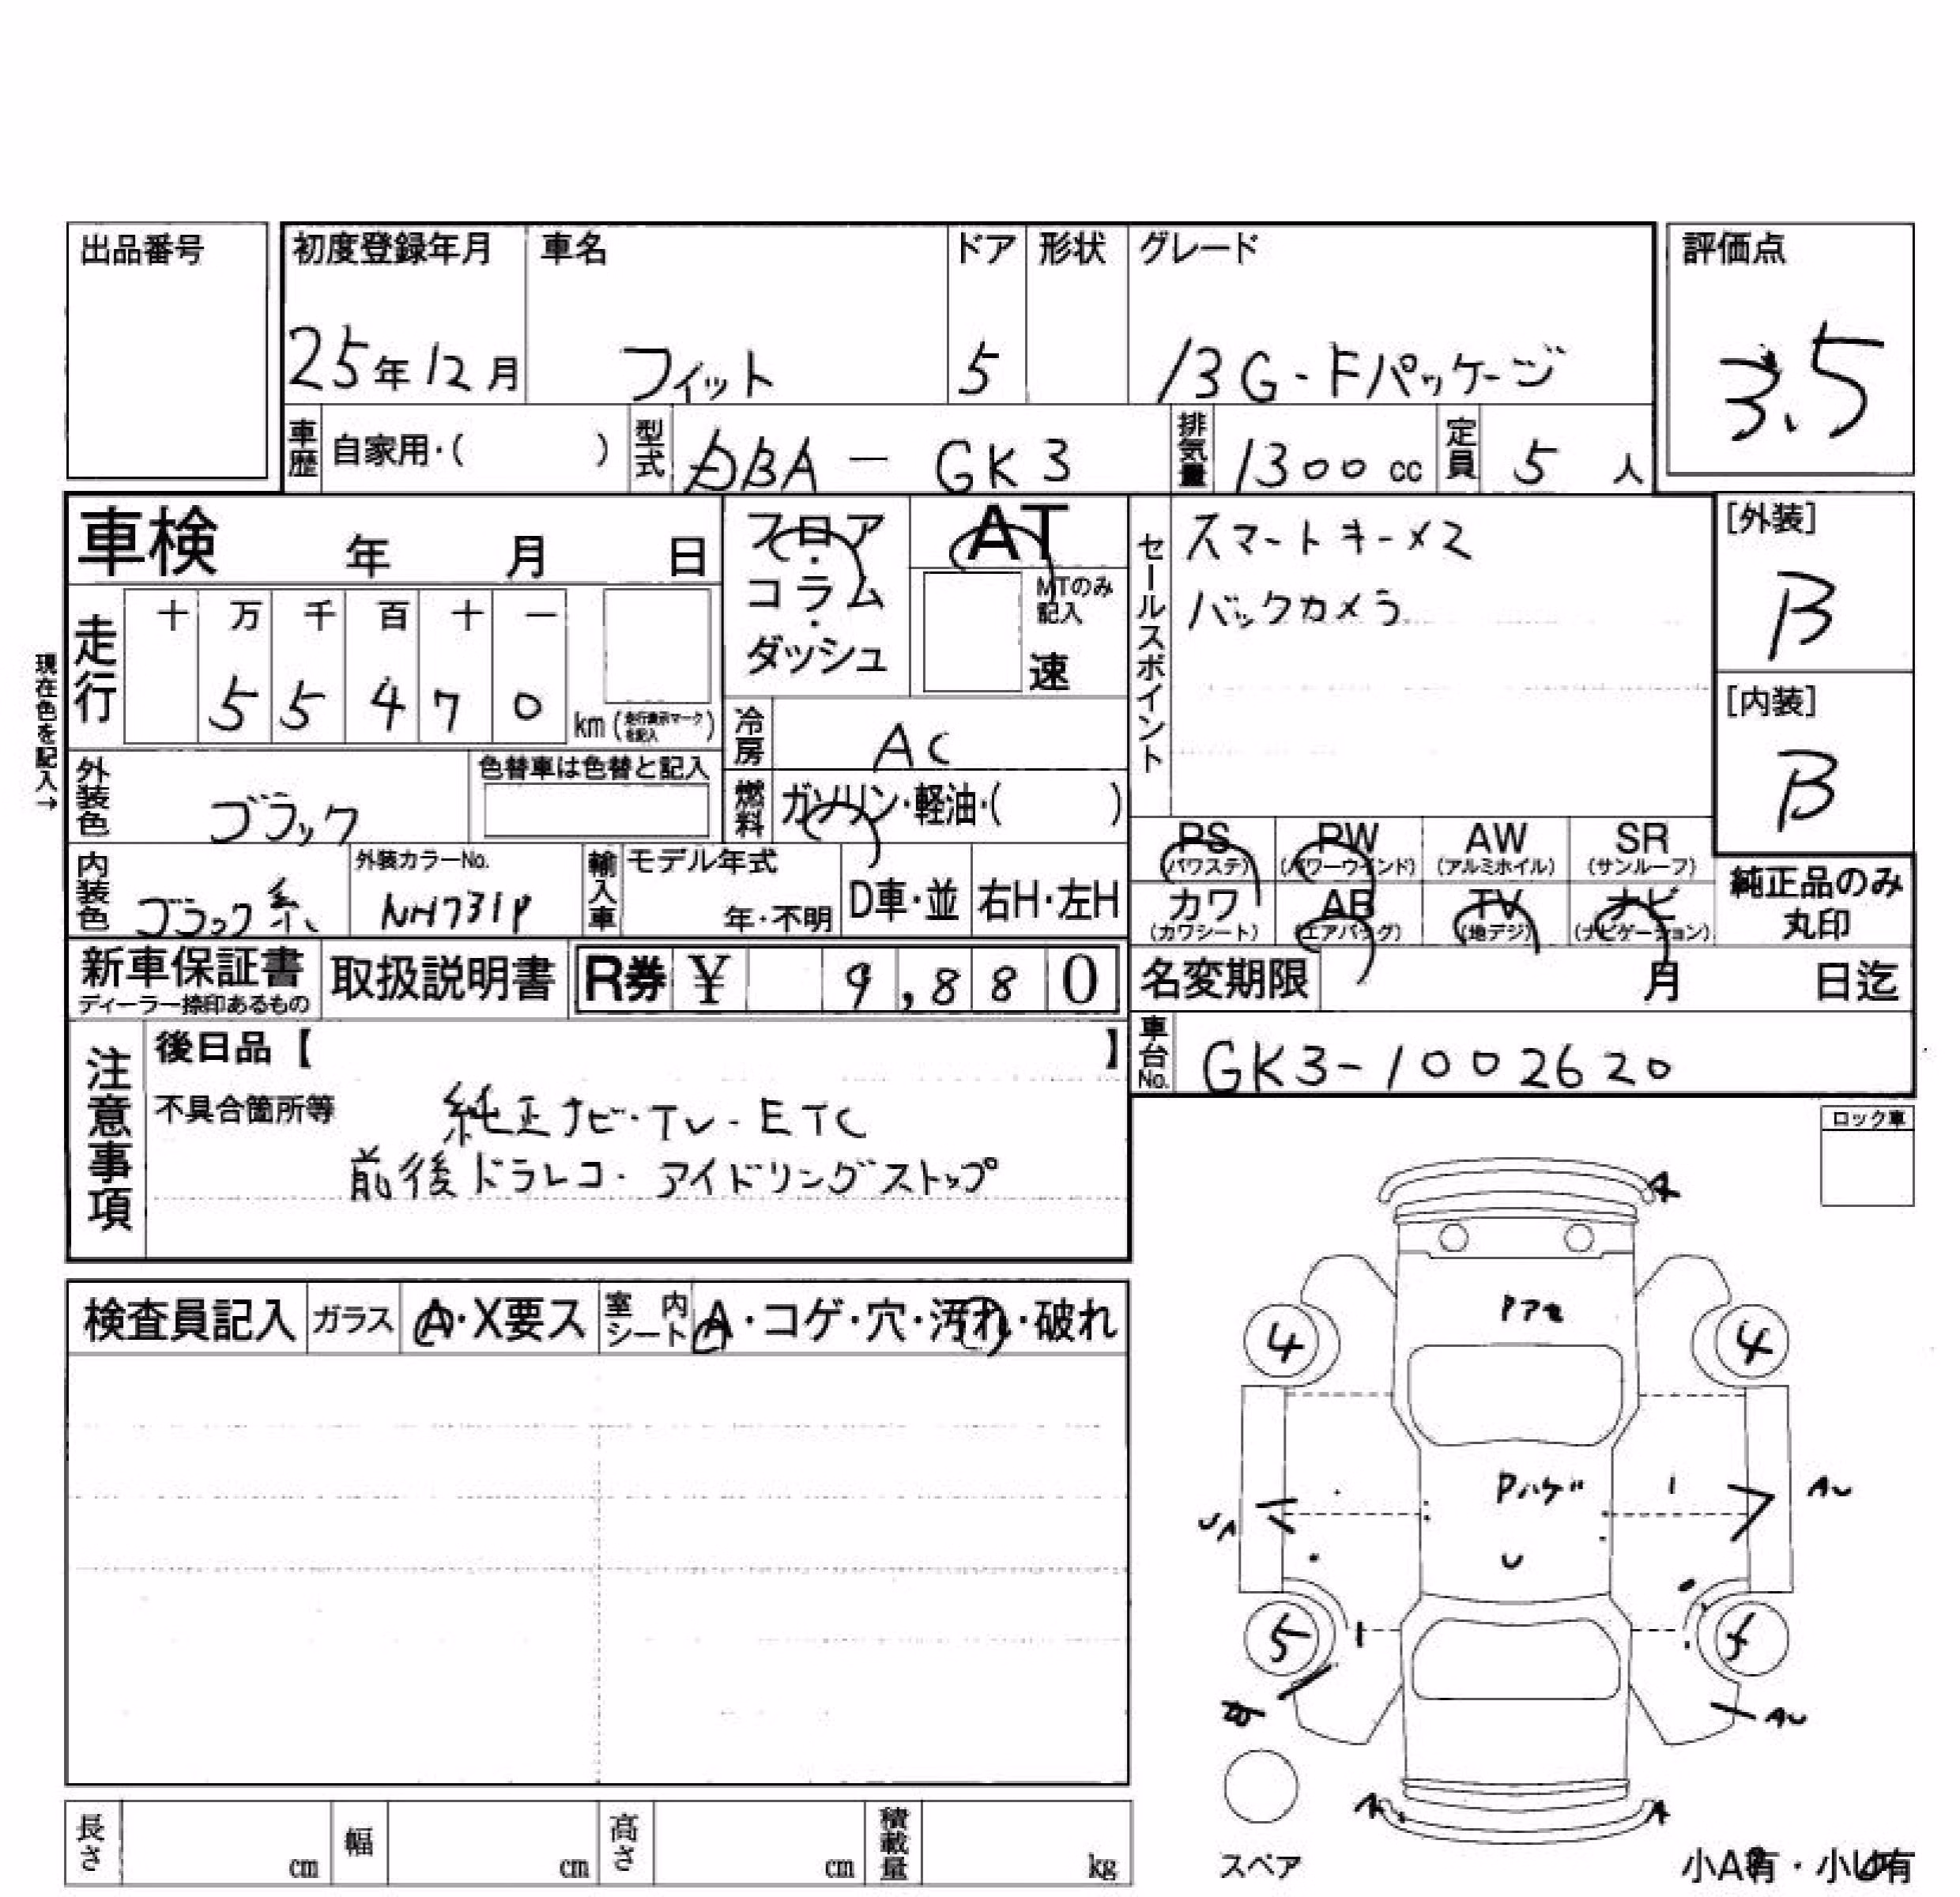 出品番号
初度登録年月 車名 ドア 形状 グレード 評価点
25年12月 フィット 5 13G-Fパッケージ 3.5
車歴 自家用・( ) 型式 DBA - GK3 排気量 1300cc 定員 5人
車検 年 月 日
フロア・コラム・ダッシュ
AT
MTのみ記入
速
セールスポイント
スマートキーメ2
バックカメラ
[外装]
B
[内装]
B
現在色を記入→
走行 十 万 千 百 十 一
5 5 4 7 0 km (走行表示マークを記入)
冷房 AC
燃料 ガソリン・軽油・( )
外装色 ブラック 色替車は色替と記入
内装色 ブラック系 外装カラーNo. NH731P 輸入車 モデル年式 年・不明 D車・並 右H・左H
PS (パワステ) PW (パワーウインド) AW (アルミホイル) SR (サンルーフ)
カワ (カワシート) AB (エアバッグ) TV (地デジ) ナビ (ナビゲーション)
純正品のみ丸印
新車保証書 ディーラー捺印あるもの 取扱説明書 R券 ¥ 9,880
名変期限 月 日迄
車台No. GK3-1002620
注意事項
後日品【 】
不具合箇所等 純正ナビ・TV・ETC
前後ドラレコ・アイドリングストップ
ロック車
検査員記入 ガラス A・X要ス 室内シート A・コゲ・穴・汚れ・破れ
A
Pアセ
4 4
Pハゲ
U
UA AU
5 5
AU
A A
スペア
小A有・小U有
長さ cm 幅 cm 高さ cm 積載量 kg